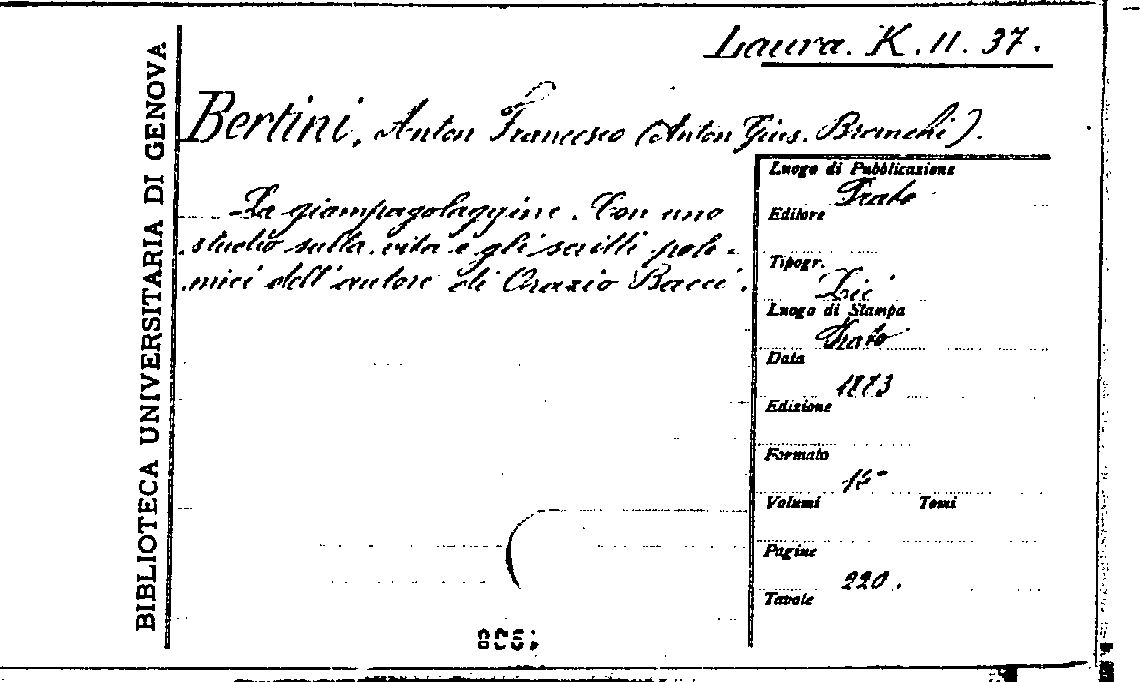 BIBLIOTECA UNIVERSITARIA DI GENOVA
Laura. K. 11. 37.
Bertini, Anton Francesco (Anton Gius. Branchi).
La giampagolaggine. Con uno
studio sulla vita e gli scritti pole-
mici dell'autore di Orazio Bacci.
Luogo di Pubblicazione
Prato
Editore
Tipogr.
Luogo di Stampa
Prato
Data
Edizione
Formato
16°
Volumi Tomi
Pagine
220.
Tavole